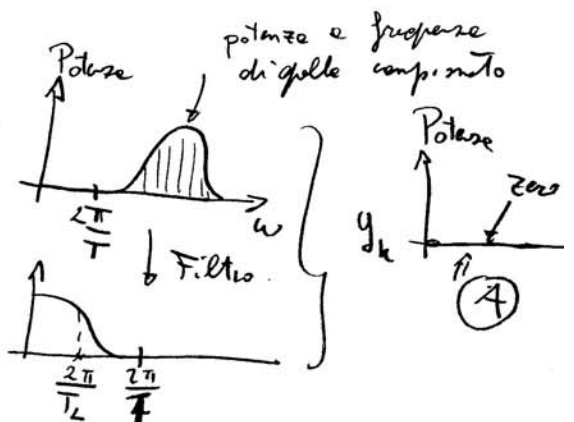 potenza a frequenze
di quelle campionato
Potenza
2π/T
ω
Filtro
2π/T_L
2π/T
Potenza
zero
y_k
A